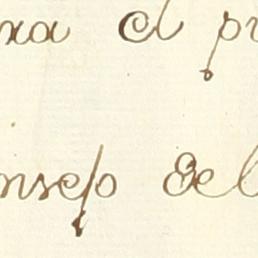 xa el pr
nsejo del